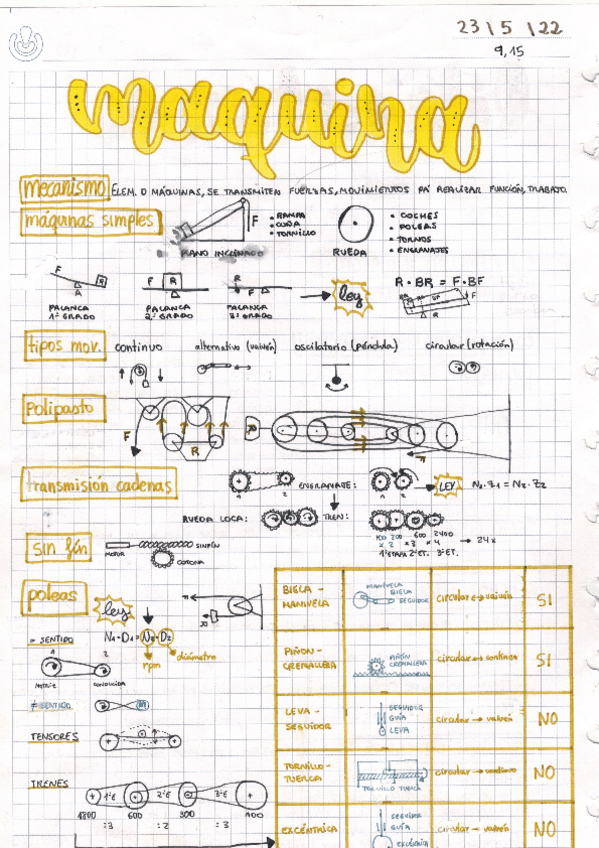 23 | 5 | 22
9,15
maquina
mecanismo ELEM. D MÁQUINAS, SE TRANSMITEN FUERZAS, MOVIMIENTOS PA' REALIZAR FUNCIÓN, TRABAJO.
máqunas simples
F
• RAMPA
• CUÑA
• TORNILLO
PLANO INCLINADO
RUEDA
• COCHES
• POLEAS
• TORNOS
• ENGRANAJES
F R A
PALANCA 1º GRADO
F R
PALANCA 2º GRADO
R F
PALANCA 3º GRADO
ley
R · BR = F · BF
BR BF F
R
tipos mov.
continuo
alternativo (vaivén)
oscilatorio (péndulo)
circular (rotación)
polipasto
F
R
R
F
transmisión cadenas
1 2
ENGRANAJE:
1 2
LEY
N1·Z1 = N2·Z2
RUEDA LOCA:
TREN:
100 200 600 2400
x 2 x 3 x 4 → 24x
1ª ETAPA 2ª ET. 3ª ET.
sin fín
MOTOR
SINFÍN
CORONA
poleas
ley
N1·D1 = N2·D2
rpm
diámetro
F
R
= SENTIDO
1 2
MOTRIZ
CONDUCIDA
≠ SENTIDO
TENSORES
TRENES
1ªE 2ªE 3ªE
1800 600 300 100
:3 :2 :3
BIELA - MANIVELA
MANIVELA
BIELA
SEGUIDOR
circular ↔ vaivén
SI
PIÑON - CREMALLERA
PIÑÓN
CREMALLERA
circular ↔ continuo
SI
LEVA - SEGUIDOR
SEGUIDOR
GUÍA
LEVA
circular → vaivén
NO
TORNILLO - TUERCA
TORNILLO TUERCA
circular → continuo
NO
EXCÉNTRICA
SEGUIDOR
GUÍA
EXCÉNTRICA
circular → vaivén
NO